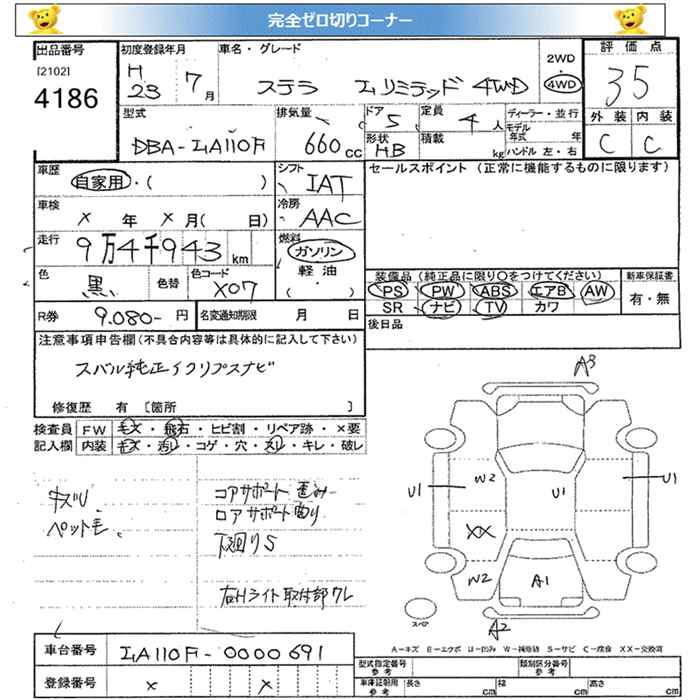 完全ゼロ切りコーナー
出品番号
[2102]
4186
初度登録年月
H
23 7月
車名・グレード
ステラ Lリミテッド 4WD
2WD
4WD
評価点
3.5
外装 内装
C C
型式
DBA-LA110F
排気量
660cc
ドア 5
形状 HB
定員 4人
積載 kg
ディーラー・並行
モデル年式 年
ハンドル 左・右
車歴
自家用・( )
シフト
IAT
車検
× 年 × 月( 日)
冷房
AAC
走行
9万4千943km
燃料
ガソリン
軽油
( ・ )
色
黒
色替
色コード
X07
R券 9.080-円
名変通知期限 月 日
セールスポイント (正常に機能するものに限ります)
装備品(純正品に限り○をつけてください)
PS PW ABS エアB AW
SR ナビ TV カワ
新車保証書
有・無
後日品
注意事項申告欄(不具合内容等は具体的に記入して下さい)
スバル純正イクリプスナビ
修復歴 有 [箇所 ]
検査員記入欄
FW 毛ズ・飛石・ヒビ割・リペア跡・×要
内装 キズ・汚レ・コゲ・穴・スレ・キレ・破レ
キズU
ペット毛
コアサポート歪み
ロアサポート曲り
下廻りS
右Hライト取付部ワレ
A3
U1
W2
U1
U1
XX
W2
A1
スペア
A2
A-キズ E-エクボ U-凹み W-補修跡 S-サビ C-腐食 XX-交換済
車台番号
LA110F-0000691
登録番号
× ×
型式指定番号
参考
類別区分番号
参考
車庫証明用
参考
長さ cm
幅 cm
高さ cm